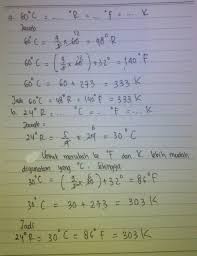 a. 60°C = ... °R = ... °F = ... K
Jawab:
60°C = 4/5 x 60 12 = 48°R
60°C = (9/5 x 60 12) + 32° = 140°F
60°C = 60 + 273 = 333 K
Jadi 60°C = 48°R = 140°F = 333 K
b. 24°R = ... °C = ... °F = ... K
Jawab:
24°R = 5/4 x 24 6 = 30°C
Untuk merubah ke °F dan K lebih mudah
digunakan yang °C. Sehingga
30°C = (9/5 x 30 6) + 32° = 86°F
30°C = 30 + 273 = 303 K
Jadi
24°R = 30°C = 86°F = 303 K